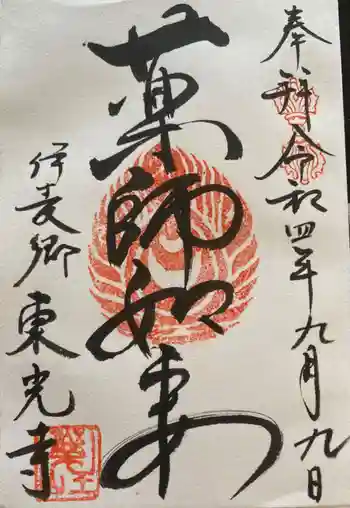 奉拝
令和四年九月九日
薬師如来
伊麦郷
東光寺